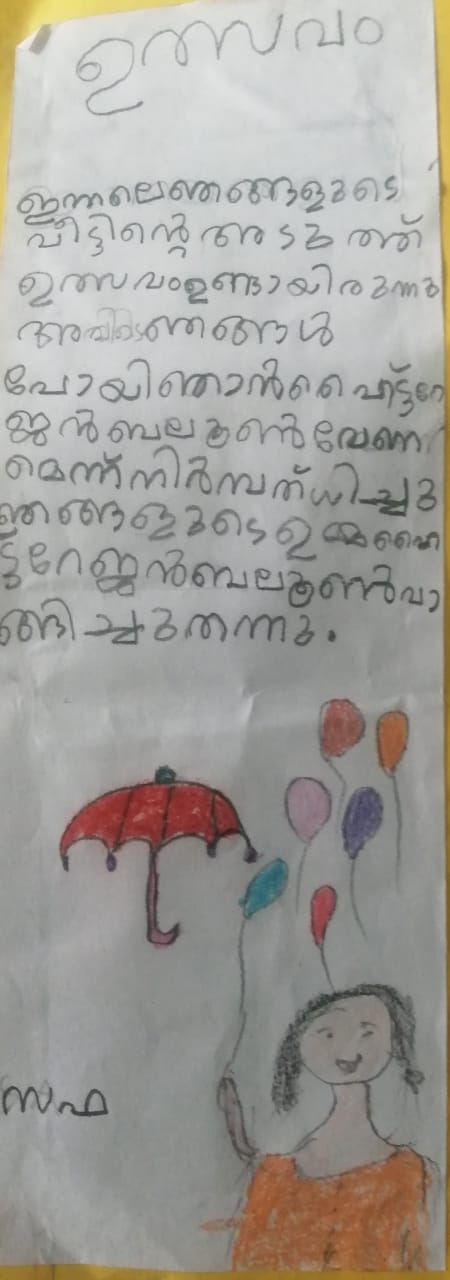 ഉത്സവം
ഇന്നലെഞങ്ങളുടെ
വീട്ടിന്റെ അടുത്ത്
ഉത്സവംഉണ്ടായിരുന്നു
അവിടെഞങ്ങൾ
പോയിഞാൻഹൈട്രറേ
ജൻബലൂൺവേണ
മെന്ന്നിർമ്പന്ധിച്ചു
ഞങ്ങളുടെഉമ്മഹൈ
ട്രറേജൻബലൂൺവാ
ങ്ങിച്ചുതന്നു.
സഫ